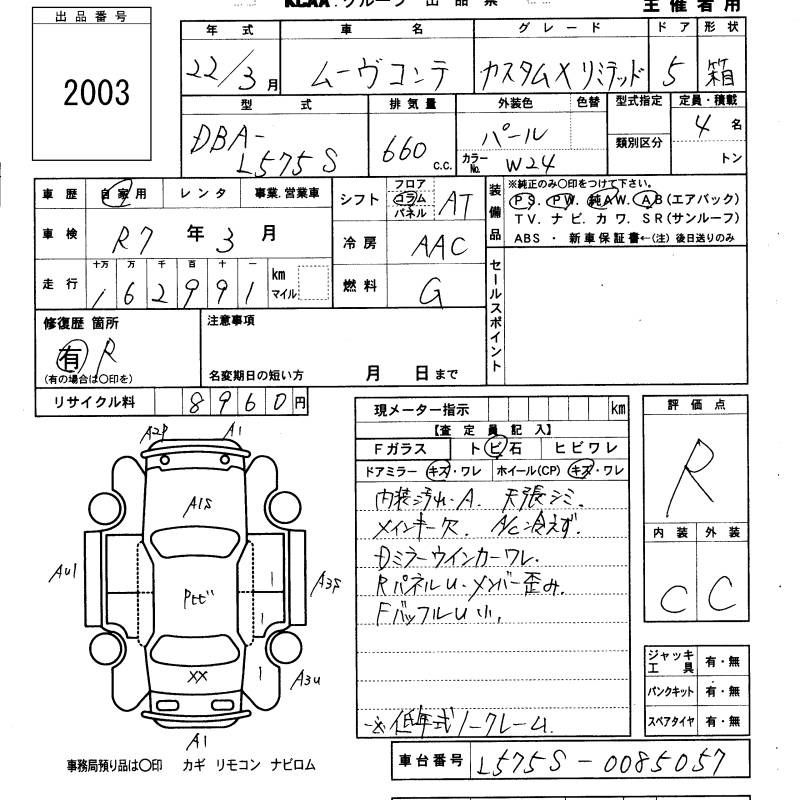 KCAA. グループ 出品票 主催者用
出品番号
2003
年式 車名 グレード ドア 形状
22/3月 ムーヴコンテ カスタムXリミテッド 5 箱
型式 排気量 外装色 色替 型式指定 定員・積載
DBA-L575S 660 c.c. パール カラーNo. W24 類別区分 4名 トン
車歴 自家用 レンタ 事業.営業車
車検 R7年3月
走行 十万 万 千 百 十 一
162991 km マイル
シフト フロア コラム パネル AT
冷房 AAC
燃料 G
装備品 ※純正のみ○印をつけて下さい。
PS. PW. 純AW. AB(エアバック)
TV. ナビ. カワ. SR(サンルーフ)
ABS ・ 新車保証書←(注) 後日送りのみ
セールスポイント
修復歴 箇所
有 R
(有の場合は○印を)
注意事項
名変期日の短い方 月 日まで
リサイクル料 8960円
現メーター指示 km
【査定員記入】
Fガラス トビ石 ヒビワレ
ドアミラー キズ・ワレ ホイール(CP) キズ・ワレ
内装汚れ・A. 天張シミ.
メインキー欠. A/C冷えず.
Dミラーウインカーワレ.
RパネルU・メンバー歪み.
FバッフルU小.
※低年式ノークレーム.
評価点
R
内装 外装
C C
ジャッキ工具 有・無
パンクキット 有・無
スペアタイヤ 有・無
A2P A1
A1S
AU1
Pセビ
A3S
XX
A3U
A1
事務局預り品は○印 カギ リモコン ナビロム
車台番号 L575S-0085057